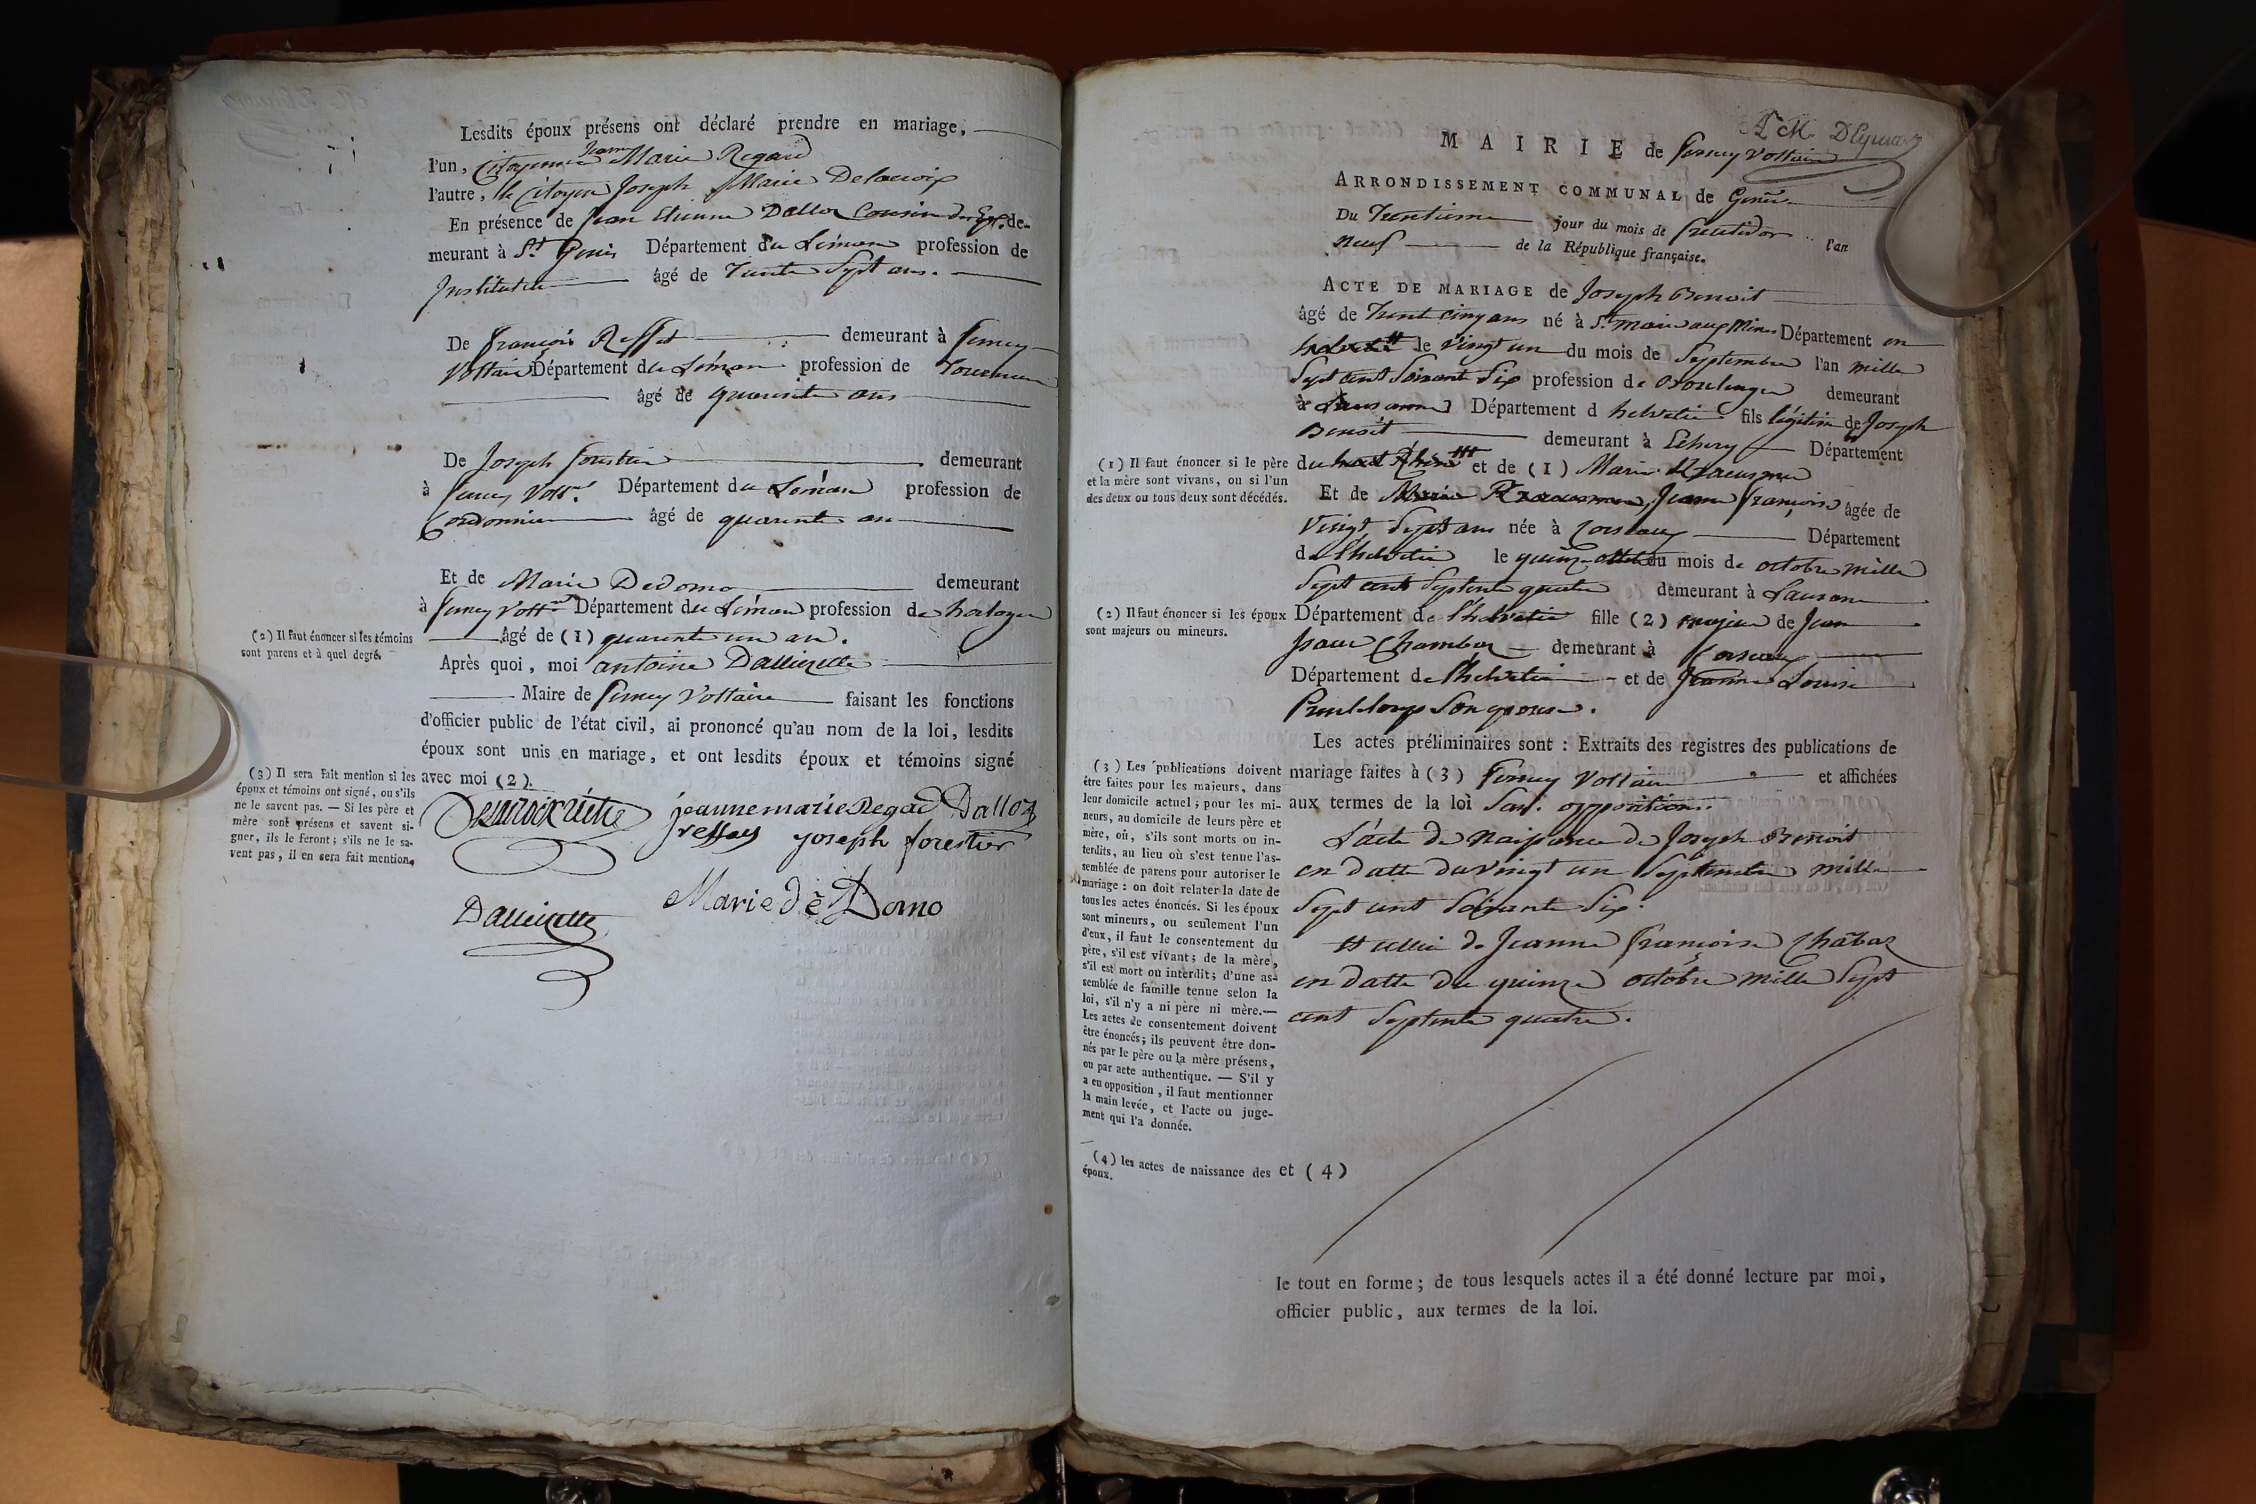 Lesdits époux présens ont déclaré prendre en mariage,
l'un, Citoyenne Jeanne Marie Regard
l'autre, le Citoyen Joseph Marie Delacroix
En présence de Jean Etienne Dalloz Cousin de-
meurant à St Genis Département du Léman profession de
Instituteur âgé de Trente Sept ans.
De François demeurant à Ferney
Voltaire Département du Léman profession de Tourneur
âgé de quarente ans
De Joseph forestier demeurant
à ferney Volt.re Département du Léman profession de
Cordonnier âgé de quarente an
Et de Marie Dedomo demeurant
à ferney Volt.re Département du Léman profession de horloger
âgé de (1) quarente un an.
(2) Il faut énoncer si les témoins
sont parens et à quel degré.
Après quoi, moi antoine Dallizette
Maire de ferney Voltaire faisant les fonctions
d'officier public de l'état civil, ai prononcé qu'au nom de la loi, lesdits
époux sont unis en mariage, et ont lesdits époux et témoins signé
avec moi (2).
(3) Il sera fait mention si les
époux et témoins ont signé, ou s'ils
ne le savent pas. — Si les père et
mère sont présens et savent si-
gner, ils le feront; s'ils ne le sa-
vent pas, il en sera fait mention.
jeanne marie Regad Dalloz
joseph forestier
Marie dê Domo
MAIRIE de ferney Voltaire
ARRONDISSEMENT COMMUNAL de Genève
Du Trentieme jour du mois de fructidor l'an
neuf de la République française.
ACTE DE MARIAGE de Joseph Benoit
âgé de Trent cinq ans né à St marie aux Mines Département en
le vingt un du mois de Septembre l'an mille
Sept cent Soixante Six profession de Boulenger demeurant
à Lausanne Département d helvetie fils légitime de Joseph
Benoit demeurant à Département
du haut Rhin et de (1) Marie
(1) Il faut énoncer si le père
et la mère sont vivans, ou si l'un
des deux ou tous deux sont décédés.
Et de Marie Jeanne françoise âgée de
Vingt Sept ans née à Corseaux Département
de l'helvetie le quinze du mois de octobre mille
Sept cent Septente quatre demeurant à Lausane
Département de l'helvetie fille (2) majeur de Jean
(2) Il faut énoncer si les époux
sont majeurs ou mineurs.
Isaac Chambaz demeurant à Corseaux
Département de l'helvetie et de Jeanne Louise
Son épouse.
Les actes préliminaires sont : Extraits des registres des publications de
mariage faites à (3) ferney Voltaire et affichées
aux termes de la loi Sans opposition.
L'acte de naissance de Joseph Benoit
en datte du vingt un Septembre mille
Sept cent Soixante Six.
et celui de Jeanne françoise Chābaz
en datte du quinze octobre mille Sept
cent Septente quatre.
(3) Les publications doivent
être faites pour les majeurs, dans
leur domicile actuel; pour les mi-
neurs, au domicile de leurs père et
mère, où, s'ils sont morts ou in-
terdits, au lieu où s'est tenue l'as-
semblée de parens pour autoriser le
mariage : on doit relater la date de
tous les actes énoncés. Si les époux
sont mineurs, ou seulement l'un
d'eux, il faut le consentement du
père, s'il est vivant; de la mère,
s'il est mort ou interdit; d'une as-
semblée de famille tenue selon la
loi, s'il n'y a ni père ni mère.—
Les actes de consentement doivent
être énoncés; ils peuvent être don-
nés par le père ou la mère présens,
ou par acte authentique. — S'il y
a eu opposition, il faut mentionner
la main levée, et l'acte ou juge-
ment qui l'a donnée.
(4) les actes de naissance des
époux.
et (4)
le tout en forme; de tous lesquels actes il a été donné lecture par moi,
officier public, aux termes de la loi.